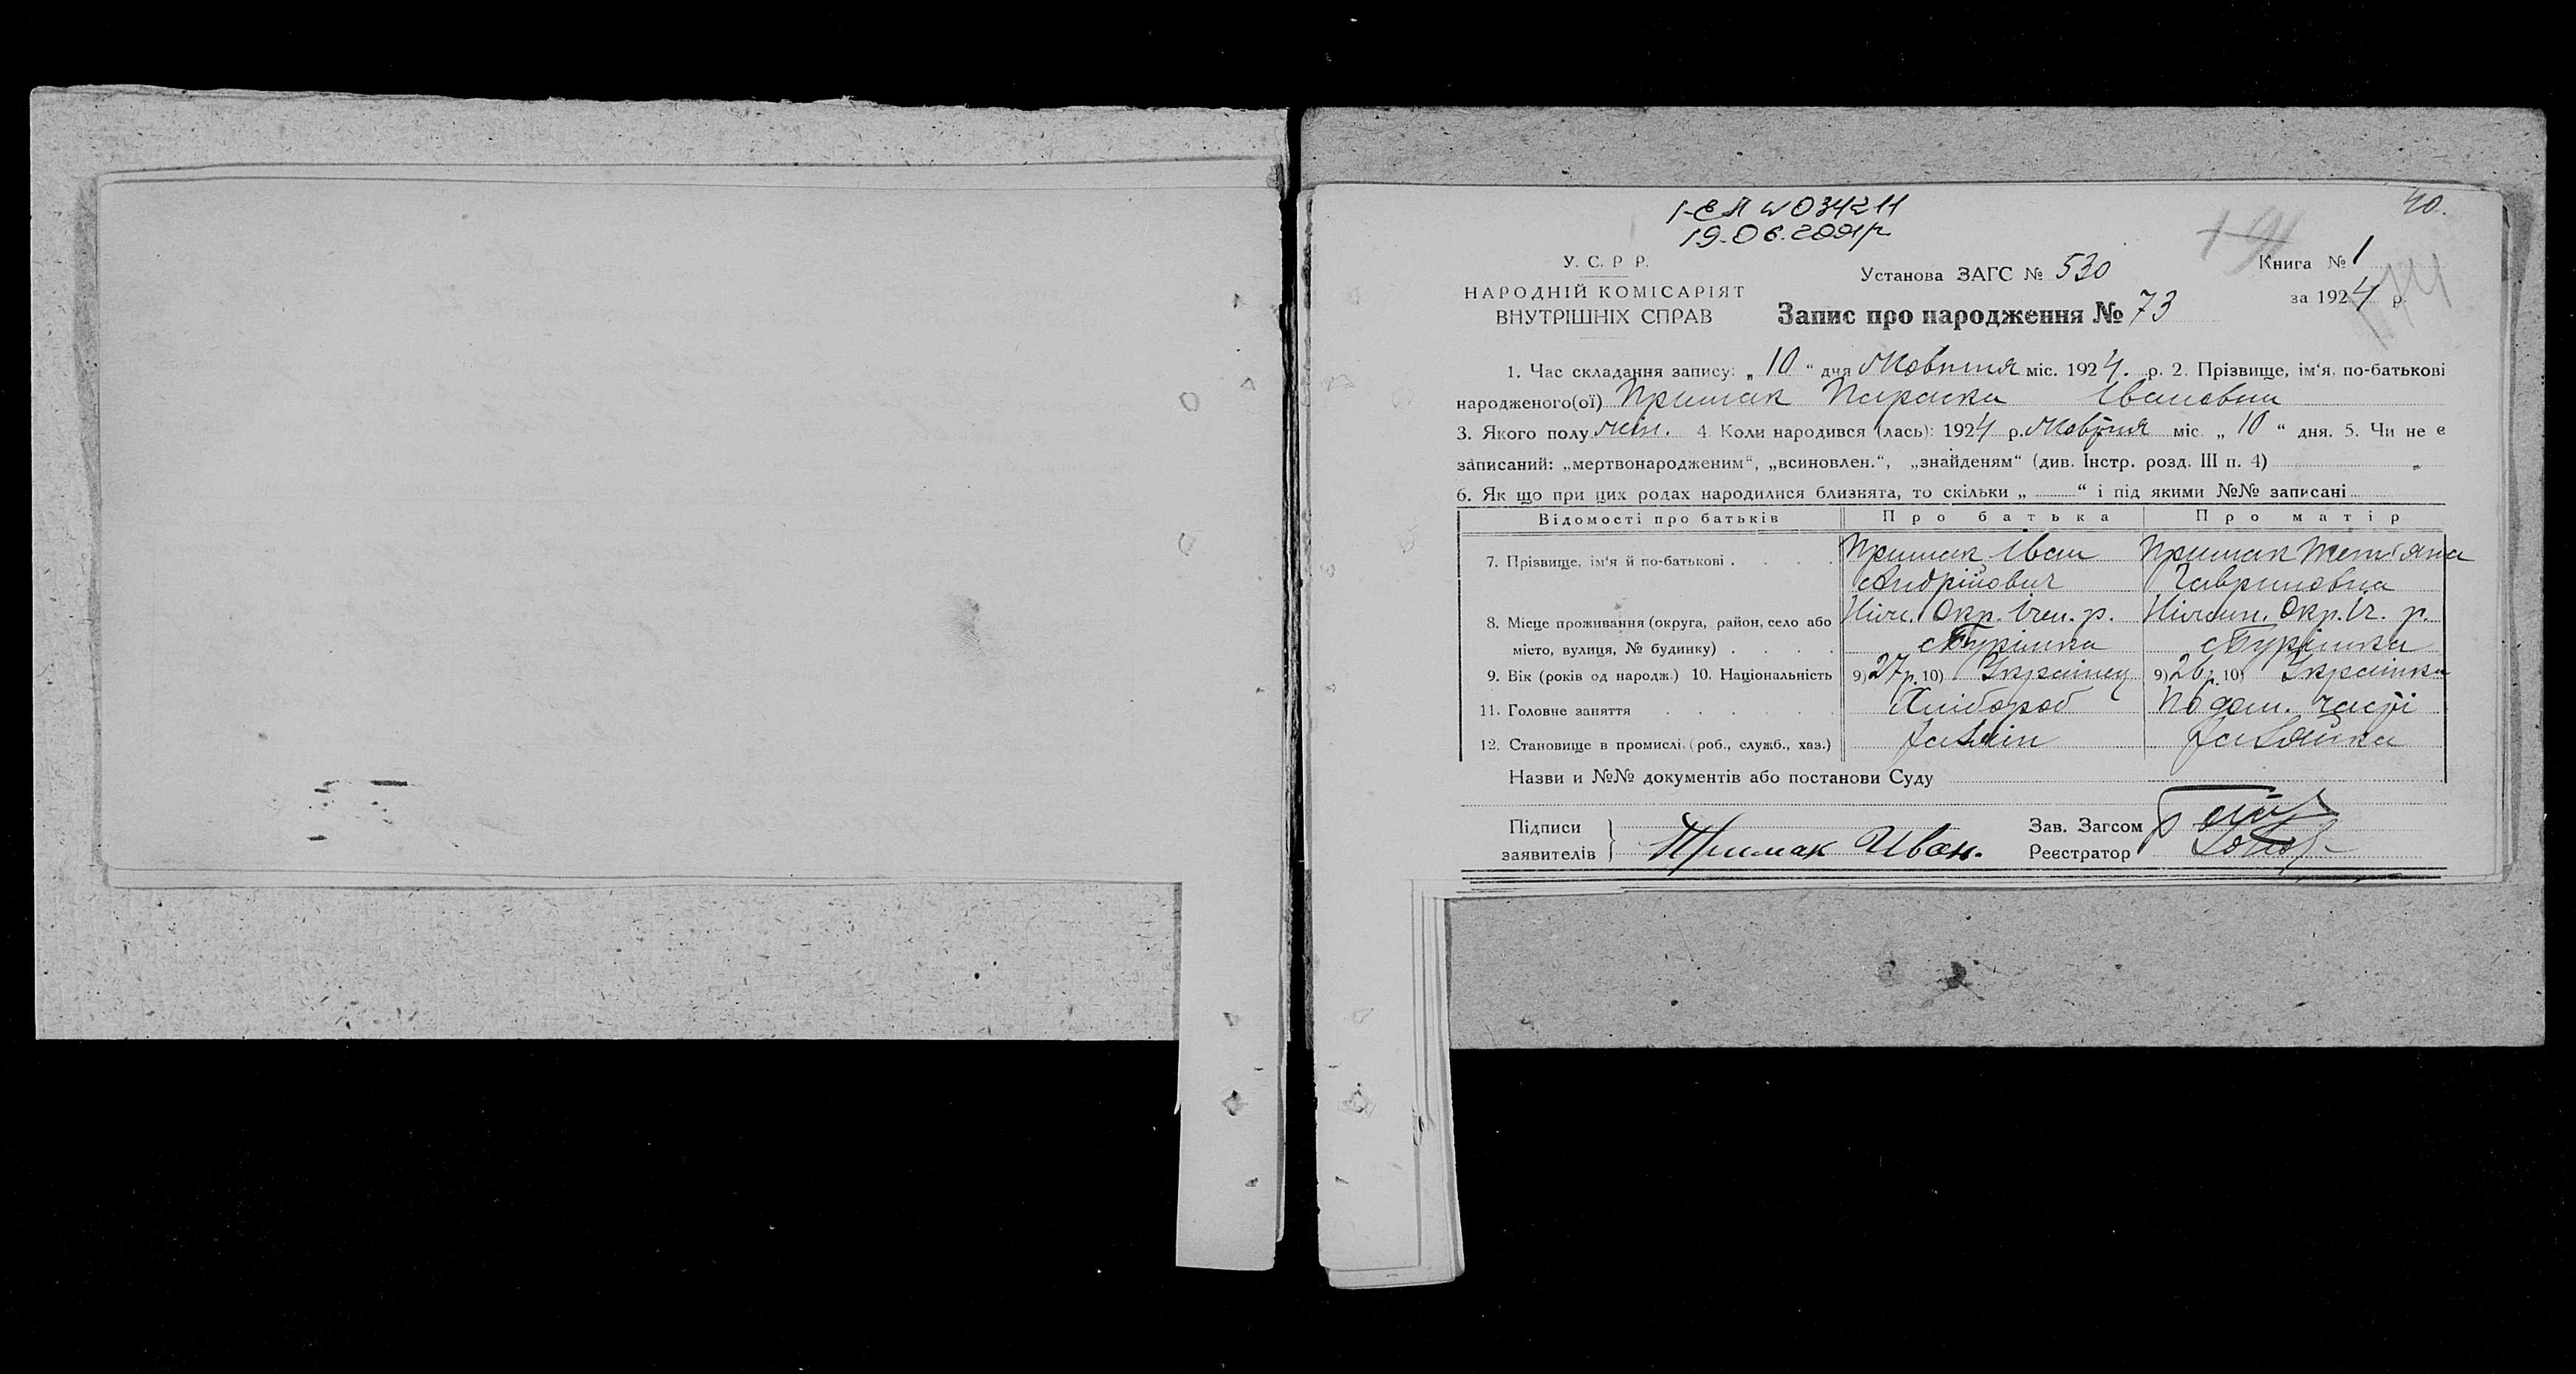 40.
І-ЕЛ №034211
19.06.2001р
У. С. Р Р.
НАРОДНІЙ КОМІСАРІЯТ
ВНУТРІШНІХ СПРАВ
Установа ЗАГС № 530
Запис про народження № 73
Книга № 1
за 1924 р.
1. Час складання запису: „ 10 “ дня Жовтня міс. 1924. р. 2. Прізвище, ім‘я, по-батькові
народженого(ої) Примак Параска Івановна
3. Якого полу жін. 4. Коли народився (лась): 1924 р. Жовтня міс. „ 10 “ дня. 5. Чи не є
записаний: „мертвонародженим“, „всиновлен.“, „знайденям“ (див. Інстр. розд. III п. 4)
6. Як що при цих родах народилися близнята, то скільки „ “ і під якими №№ записані
Відомості про батьків Про батька Про матір
7. Прізвище, ім‘я й по-батькові . . . . Примак Іван Примак Тетяна
Андрійович Гавриловна
8. Місце проживання (округа, район, село або Ніж. Окр. Ічен. р. Ніжин. Окр. Іч. р.
місто, вулиця, № будинку) . . . . с Бурімка с Бурімка
9. Вік (років од народж.) 10. Національність 9) 27 р. 10) Українец 9) 26 р. 10) Українка
11. Головне заняття . . . . . . Хлібороб По дом. часті
12. Становище в промислі (роб., служб., хаз.) Хазяїн Хазяйка
Назви и №№ документів або постанови Суду
Підписи
заявителів } Примак Иван.
Зав. Загсом
Реєстратор